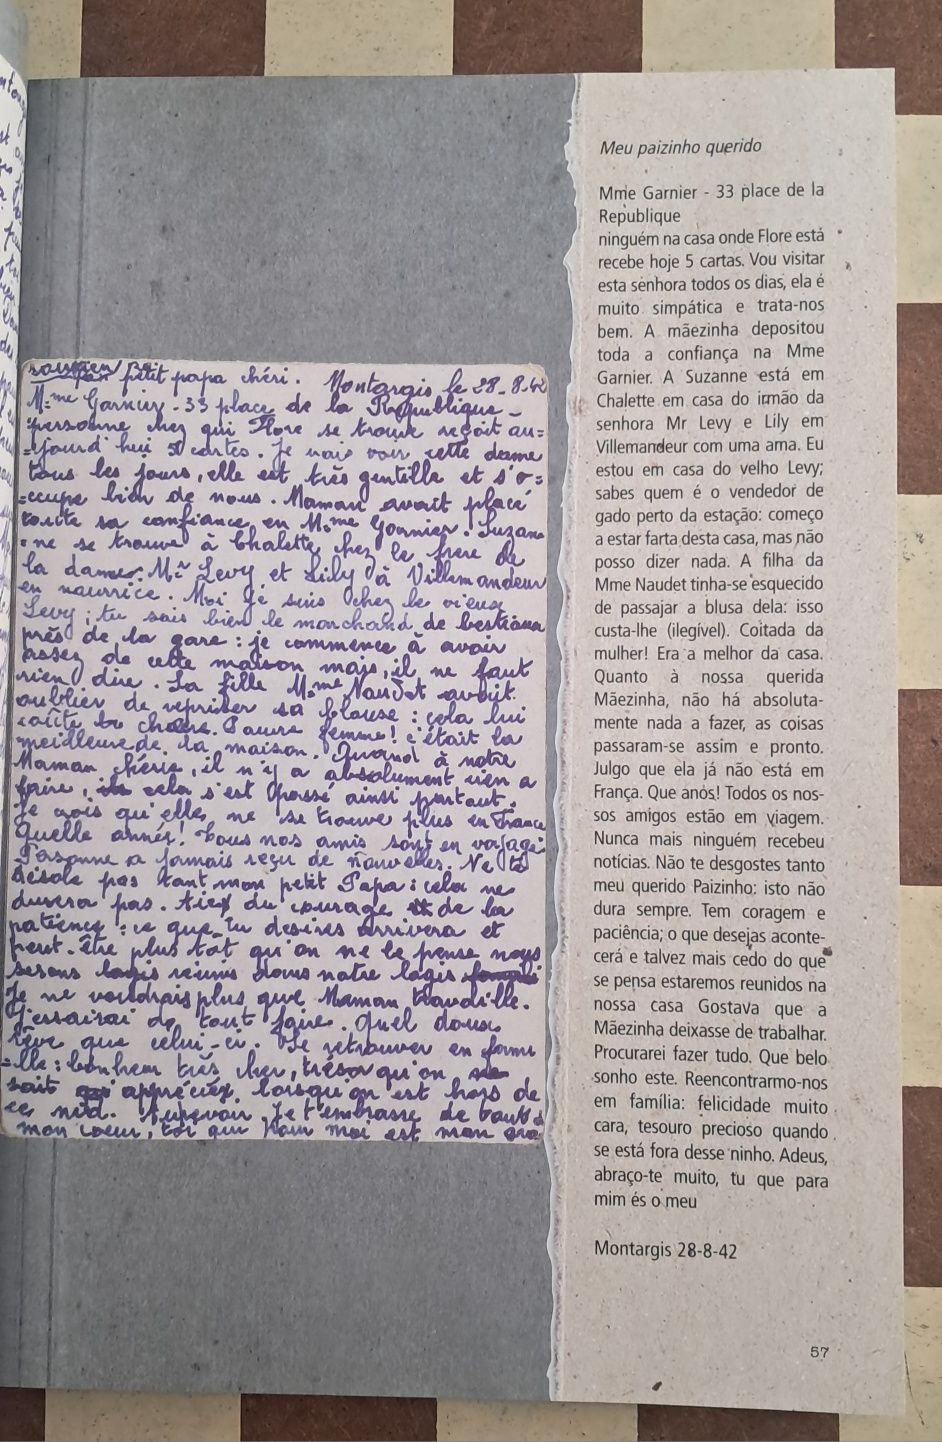 mon petit papa chéri. Montargis le 28-8-42
Mme Garnier - 33 place de la République -
personne chez qui Flore se trouve reçoit au=
=jourd'hui 5 cartes. Je vais voir cette dame
tous les jours, elle est très gentille et s'o=
=ccupe bien de nous. Maman avait placé
toute sa confiance en Mme Garnier. Suzan
=ne se trouve à Chalette chez le frère de
la dame Mr Levy et Lily à Villemandeur
en nourrice. Moi je suis chez le vieux
Levy ; tu sais bien le marchand de bestiaux
près de la gare : je commence à avoir
assez de cette maison mais, il ne faut
rien dire. La fille Mme Naudet avait
oublier de repriser sa blouse : cela lui
coûte chère. Pauvre femme ! c'était la
meilleure de la maison. Quand à notre
Maman chérie, il n'y a absolument rien a
faire, cela s'est passé ainsi partout.
Je crois qu'elle ne se trouve plus en France
Quelle année ! Tous nos amis sont en voyage
Personne a jamais reçu de nouvelles. Ne te
désole pas tant mon petit Papa : cela ne
durera pas. Aies du courage et de la
patience : ce que tu desires arrivera et
peut-être plus tôt qu'on ne le pense nous
serons réunis dans notre logis
Je ne voudrais plus que Maman travaille.
J'essairai de tout faire. Quel doux
rêve que celui-ci. Se retrouver en fami
=lle : bonheur très cher, trésor qu'on
sait appréciéx lorsqu'on est hors de
ce nid. Aurevoir Je t'embrasse de tout
mon coeur, toi qui pour moi est mon
Meu paizinho querido
Mme Garnier - 33 place de la
Republique
ninguém na casa onde Flore está
recebe hoje 5 cartas. Vou visitar
esta senhora todos os dias, ela é
muito simpática e trata-nos
bem. A mãezinha depositou
toda a confiança na Mme
Garnier. A Suzanne está em
Chalette em casa do irmão da
senhora Mr Levy e Lily em
Villemandeur com uma ama. Eu
estou em casa do velho Levy;
sabes quem é o vendedor de
gado perto da estação: começo
a estar farta desta casa, mas não
posso dizer nada. A filha da
Mme Naudet tinha-se esquecido
de passajar a blusa dela: isso
custa-lhe (ilegível). Coitada da
mulher! Era a melhor da casa.
Quanto à nossa querida
Mãezinha, não há absoluta-
mente nada a fazer, as coisas
passaram-se assim e pronto.
Julgo que ela já não está em
França. Que anos! Todos os nos-
sos amigos estão em viagem.
Nunca mais ninguém recebeu
notícias. Não te desgostes tanto
meu querido Paizinho: isto não
dura sempre. Tem coragem e
paciência; o que desejas aconte-
cerá e talvez mais cedo do que
se pensa estaremos reunidos na
nossa casa Gostava que a
Mãezinha deixasse de trabalhar.
Procurarei fazer tudo. Que belo
sonho este. Reencontrarmo-nos
em família: felicidade muito
cara, tesouro precioso quando
se está fora desse ninho. Adeus,
abraço-te muito, tu que para
mim és o meu
Montargis 28-8-42
57